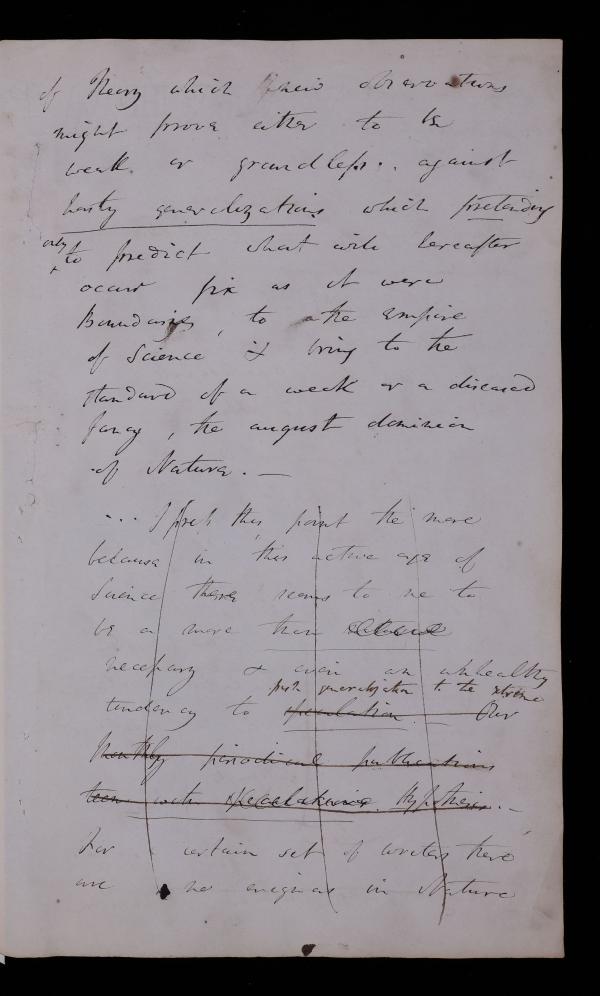 of Theory which their observations
might prove either to be
weak or groundless. against
hasty generalizations which pretending
only
to predict what will hereafter
occur fix as it were
Boundaries, to the Empire
of Science & bring to the
standard of a weak or a diseased
fancy, the august dominion
of Nature. —
... I press this point the more
because in this active age of
Science there seems to me to
be a more than
necessary & even an unhealthy
push generalization to the extreme
tendency to speculation. Our
Monthly periodical publications
teem with speculative Hypothesis. —
For certain set of writers there
are no enigmas in Nature